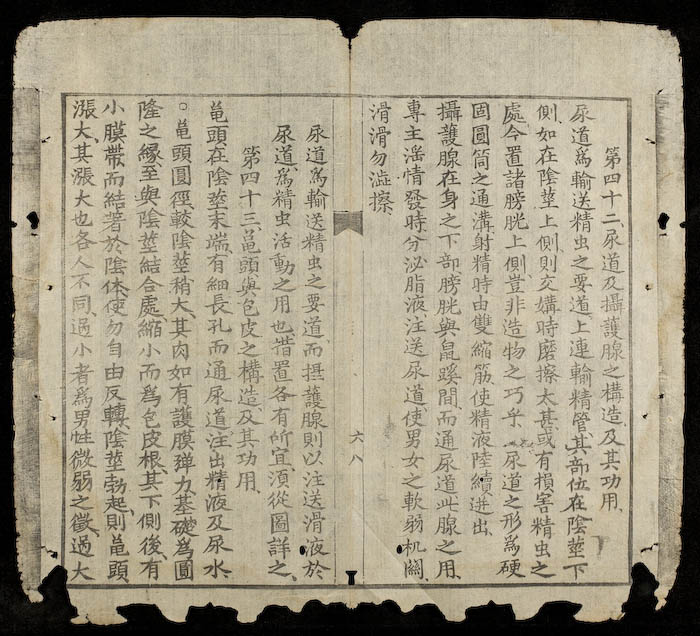 第四十二、尿道及攝護腺之構造、及其功用、
尿道爲輸送精虫之要道、上連輸精管、其部位在陰莖下
側、如在陰莖上側、則交媾時磨擦太甚、或有損害精虫之
處、今置諸膀胱上側、豈非造物之巧乎、尿道之形爲硬
固圓筒之通溝、射精時由雙縮筋、使精液陸續迸出、
攝護腺在身之下部、膀胱與鼠蹊間、而通尿道、此腺之用、
專主淫情發時、分泌脂液、注送尿道、使男女之軟弱机關、
滑滑勿澁擦
六八
尿道爲輸送精虫之要道、而摂護腺則以注送滑液於
尿道、爲精虫活動之用也、措置各有所宜、須從圖詳之、
第四十三、亀頭與包皮之構造、及其功用、
亀頭、在陰莖末端、有細長孔而通尿道、注出精液及尿水、
○亀頭圓徑較陰莖稍大、其肉如有護膜弹力、基礎爲圓
隆之縁、至與陰莖結合處、縮小而爲包皮根、其下側後、有
小膜帶而結著於陰体、使勿自由反轉、陰莖勃起、則亀頭
漲大、其漲大也各人不同、過小者爲男性微弱之徵、過大